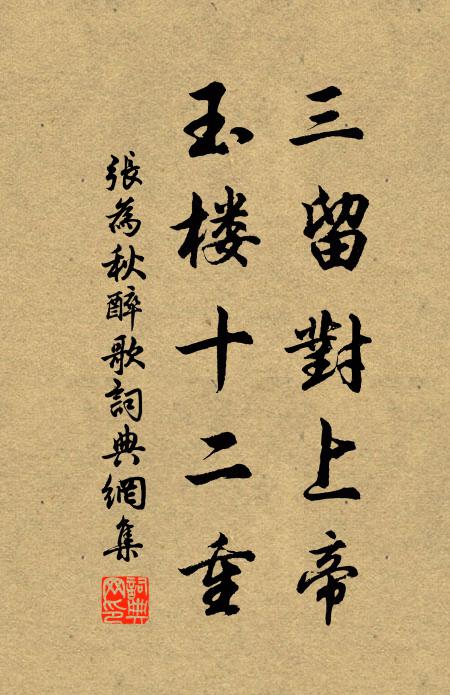 三留對上帝
玉楼十二重
張為秋醉歌詞典網集
詞典網印